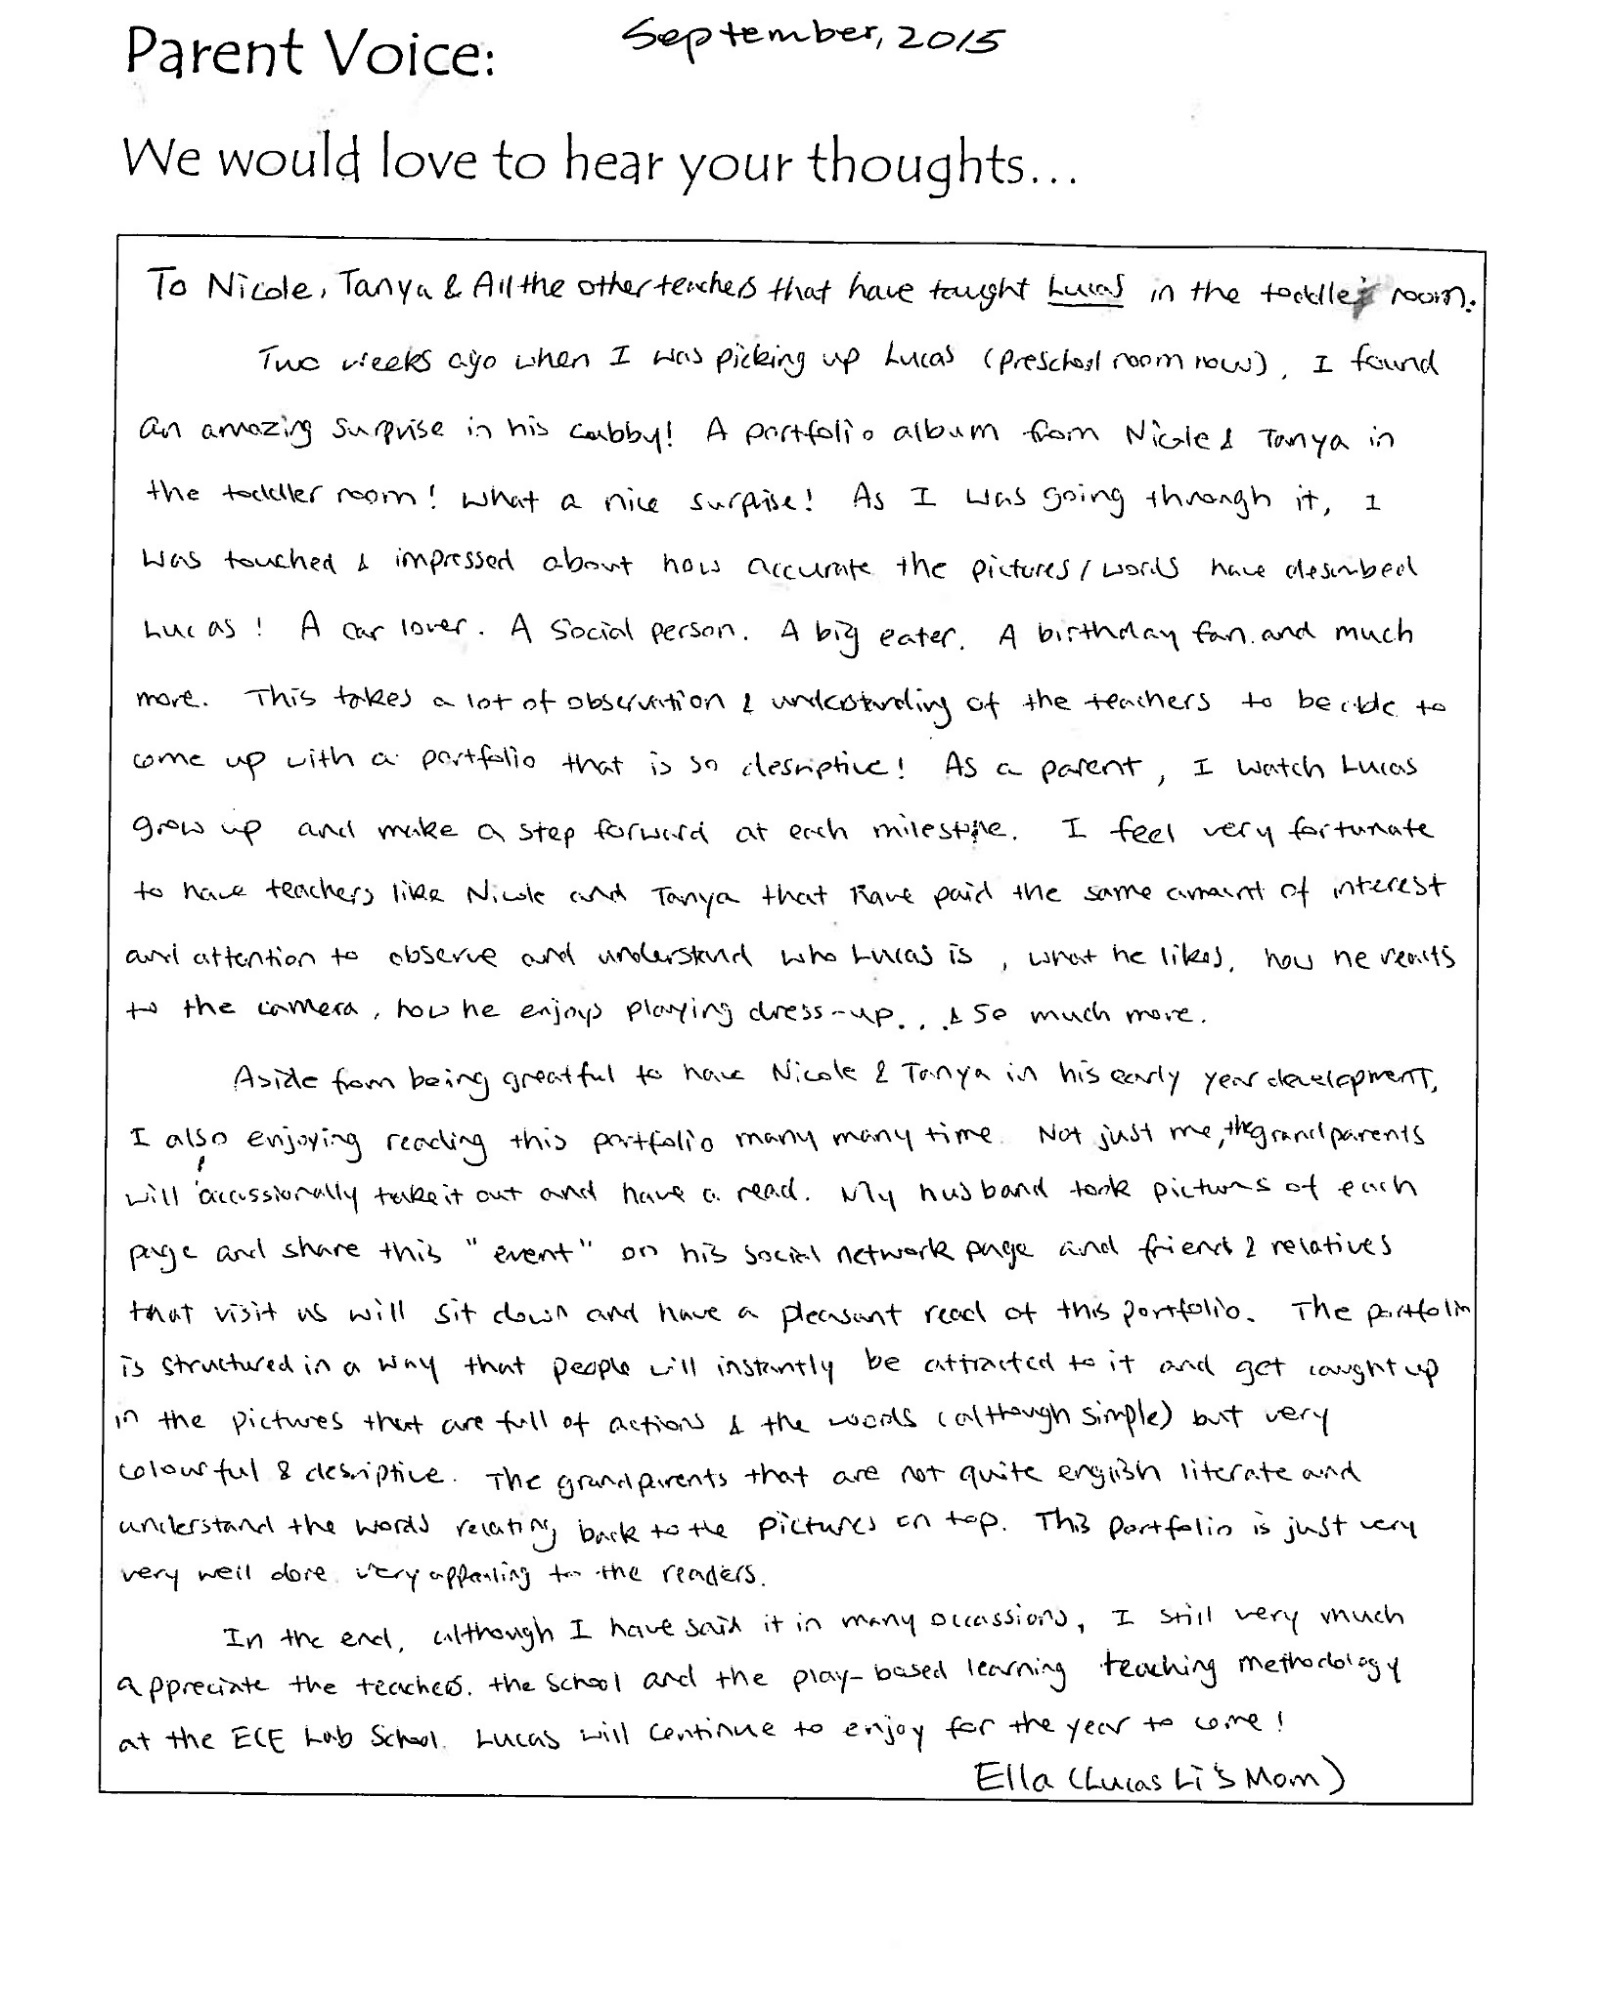 Parent Voice: September, 2015
We would love to hear your thoughts...
To Nicole, Tanya & All the other teachers that have taught Lucas in the toddler room.
Two weeks ago when I was picking up Lucas (preschool room now), I found
an amazing surprise in his cubby! A portfolio album from Nicole & Tanya in
the toddler room! What a nice surprise! As I was going through it, I
was touched & impressed about how accurate the pictures/words have described
Lucas! A car lover. A social person. A big eater. A birthday fan. and much
more. This takes a lot of observation & understanding of the teachers to be able to
come up with a portfolio that is so desriptive! As a parent, I watch Lucas
grow up and make a step forward at each milestone. I feel very fortunate
to have teachers like Nicole and Tanya that have paid the same amount of interest
and attention to observe and understand who Lucas is, what he likes, how he reacts
to the camera, how he enjoys playing dress-up... & so much more.
Aside from being greatful to have Nicole & Tanya in his early year development,
I also enjoying reading this portfolio many many time. Not just me, the grandparents
will accassionally take it out and have a read. My husband took pictures of each
page and share this "event" on his social network page and friend & relatives
that visit us will sit down and have a pleasant read of this portfolio. The portfolio
is structured in a way that people will instantly be attracted to it and get caught up
in the pictures that are full of actions & the words (although simple) but very
colourful & desriptive. The grandparents that are not quite english literate and
understand the words relating back to the pictures on top. This portfolio is just very
very well done. very appealing to the readers.
In the end, although I have said it in many occassions, I still very much
appreciate the teachers. the school and the play-based learning teaching methodology
at the ECE Lab School. Lucas will continue to enjoy for the year to come!
Ella (Lucas Li's Mom)